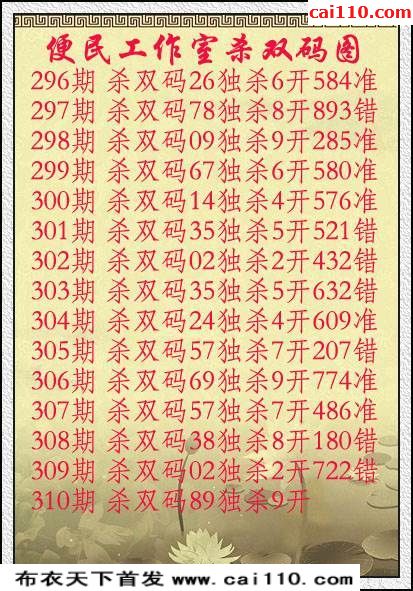 cai110.com
便民工作室杀双码图
296期 杀双码26独杀6开584准
297期 杀双码78独杀8开893错
298期 杀双码09独杀9开285准
299期 杀双码67独杀6开580准
300期 杀双码14独杀4开576准
301期 杀双码35独杀5开521错
302期 杀双码02独杀2开432错
303期 杀双码35独杀5开632错
304期 杀双码24独杀4开609准
305期 杀双码57独杀7开207错
306期 杀双码69独杀9开774准
307期 杀双码57独杀7开486准
308期 杀双码38独杀8开180错
309期 杀双码02独杀2开722错
310期 杀双码89独杀9开
布衣天下首发 www.cai110.com